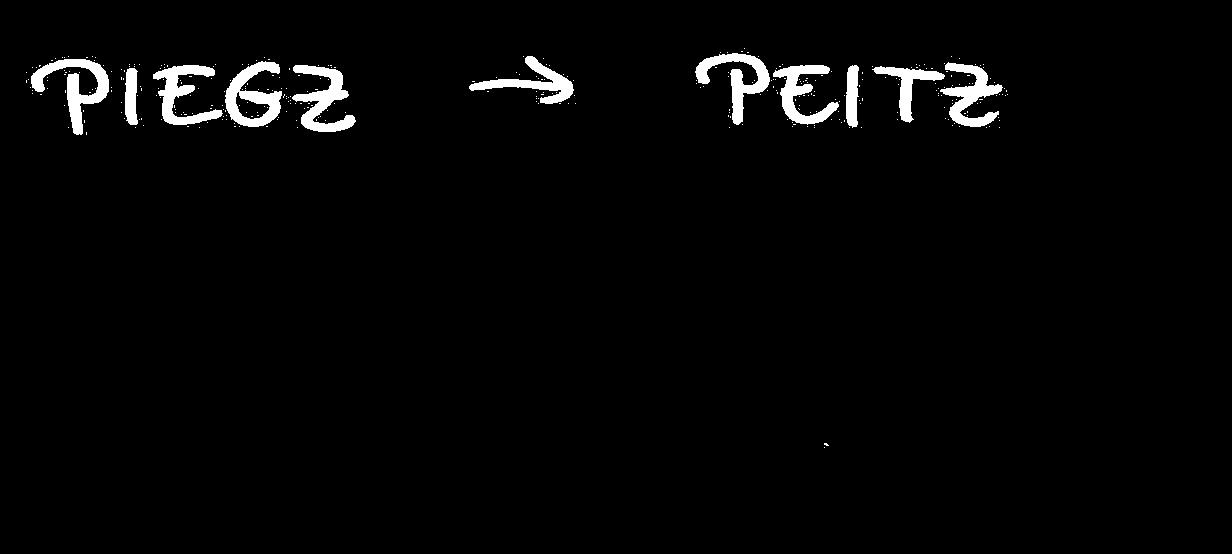 PIEGZ → PEITZ